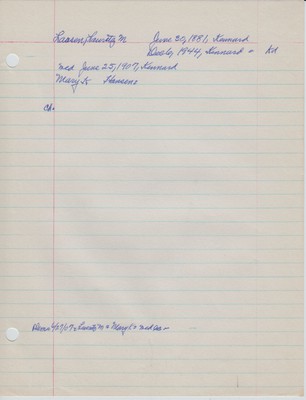 Larsen, Lauritz M June 30, 1881, Kennard
Dec 6, 1944, Kennard - Kd
med June 25, 1907, Kennard
Mary K Hansen
Ch-
Lauritz M + Mary K med